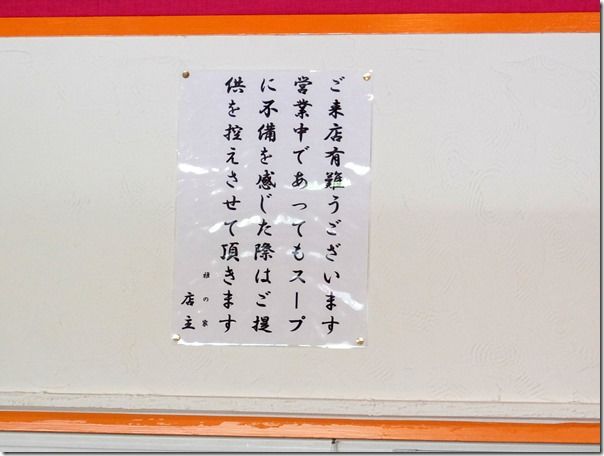 ご来店有難うございます
営業中であってもスープ
に不備を感じた際はご提
供を控えさせて頂きます
の家
店主